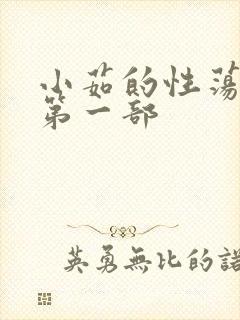 小茹的性荡
第一部
英勇無比的諾